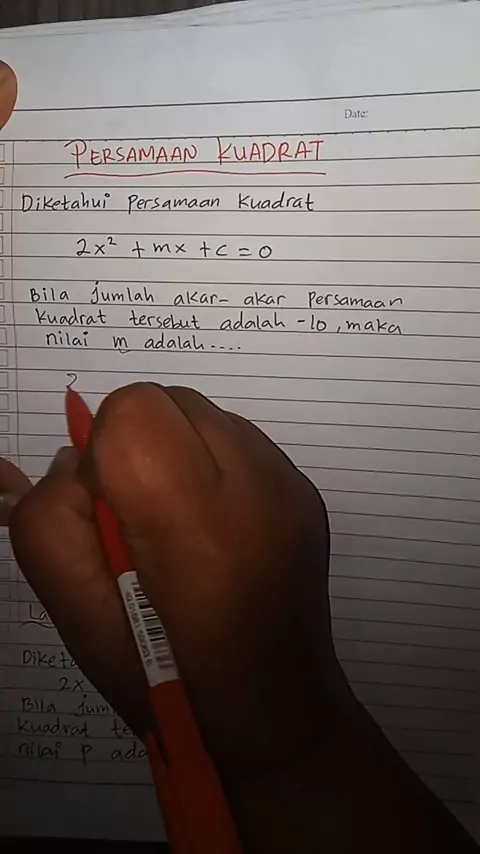 Date:
PERSAMAAN KUADRAT
Diketahui Persamaan Kuadrat
2x² + mx + c = 0
Bila jumlah akar- akar persamaan
kuadrat tersebut adalah -10, maka
nilai m adalah....
2
Diketa
2x
Bila jum
kuadrat te
nilai p ada